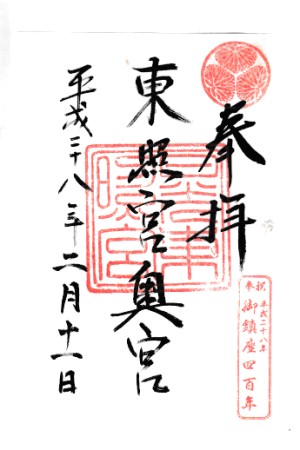 奉拝
東照宮奥宮
平成二十八年二月十一日
奉祝
平成二十八年
御鎮座四百年